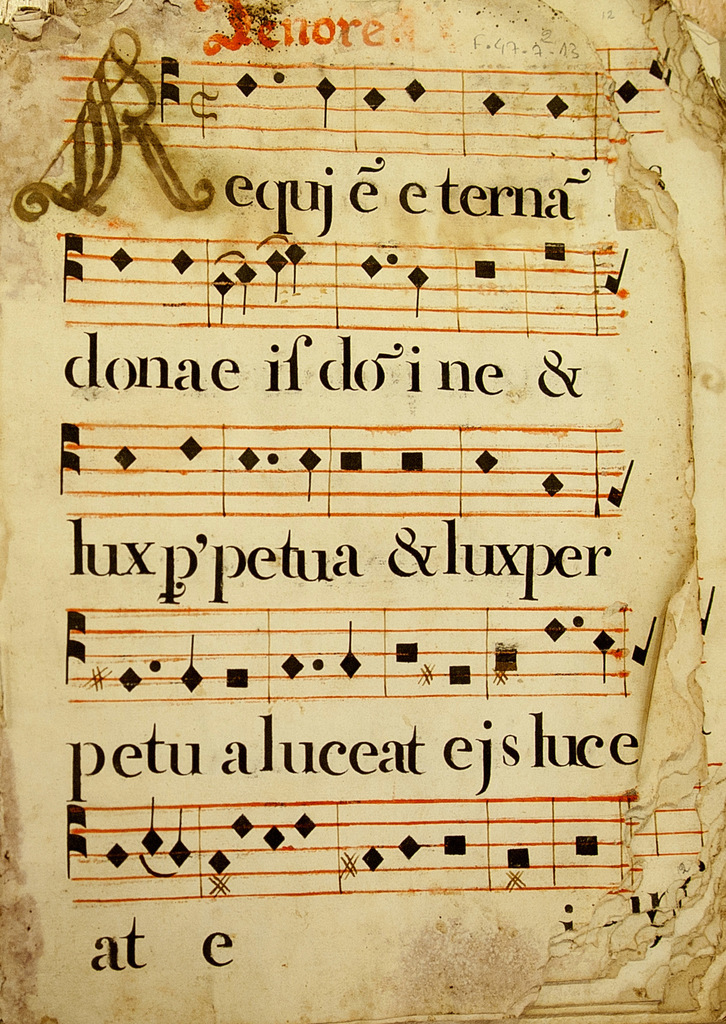 Tenore
F. 47. 2 - 13
12
Requj ẽ e ternã
donae iſ dõ i ne &
lux p̱’petua & lux per
petu a luceat ejs luce
at e